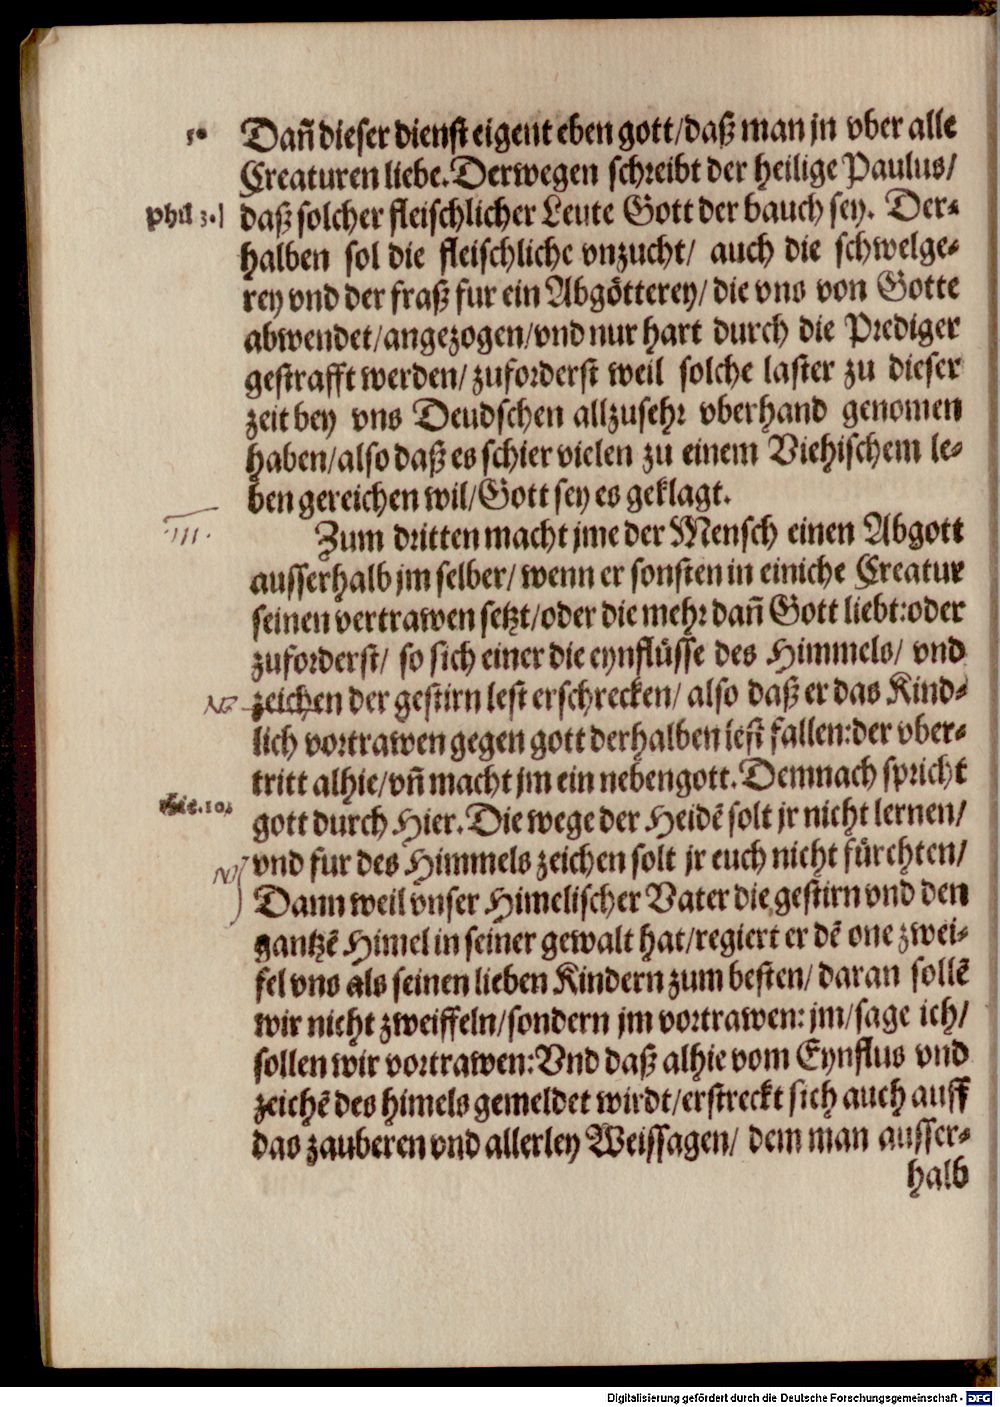 5.
Dañ dieser dienst eigent eben gott/daß man jn vber alle
Creaturen liebe. Derwegen schreibt der heilige Paulus/
phil 3. daß solcher fleischlicher Leute Gott der bauch sey. Der-
halben sol die fleischliche vnzucht/ auch die schwelge-
rey vnd der fraß fur ein Abgötterey/ die vns von Gotte
abwendet/angezogen/vnd nur hart durch die Prediger
gestrafft werden/ zuforderst weil solche laster zu dieser
zeit bey vns Deudschen allzusehr vberhand genomen
haben/also daß es schier vielen zu einem Viehischem le-
ben gereichen wil/Gott sey es geklagt.
III.
Zum dritten macht jme der Mensch einen Abgott
ausserhalb jm selber/ wenn er sonsten in einiche Creatur
seinen vertrawen setzt/oder die mehr dañ Gott liebt:oder
zuforderst/ so sich einer die eynflüsse des Himmels/ vnd
zeichen der gestirn lest erschrecken/ also daß er das Kind-
lich vortrawen gegen gott derhalben lest fallen:der vber-
tritt alhie/vñ macht jm ein nebengott. Demnach spricht
Hie. 10. gott durch Hier. Die wege der Heidē solt jr nicht lernen/
vnd fur des Himmels zeichen solt jr euch nicht fürchten/
Dann weil vnser Himelischer Vater die gestirn vnd den
gantzē Himel in seiner gewalt hat/regiert er dē one zwei-
fel vns als seinen lieben Kindern zum besten/ daran sollē
wir nicht zweiffeln/sondern jm vortrawen: jm/sage ich/
sollen wir vortrawen:Vnd daß alhie vom Eynflus vnd
zeichē des himels gemeldet wirdt/erstreckt sich auch auff
das zauberen vnd allerley Weissagen/ dem man ausser-
halb
Digitalisierung gefördert durch die Deutsche Forschungsgemeinschaft - DFG